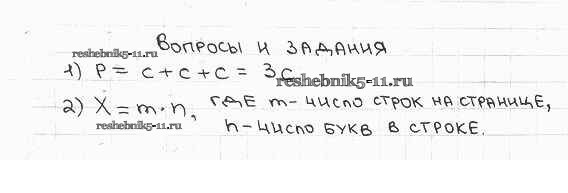 ВОПРОСЫ И ЗАДАНИЯ
reshebnik5-11.ru
1) P = c + c + c = 3c
reshebnik5-11.ru
2) X = m · n, ГДЕ m - ЧИСЛО СТРОК НА СТРАНИЦЕ,
reshebnik5-11.ru
n - ЧИСЛО БУКВ В СТРОКЕ.